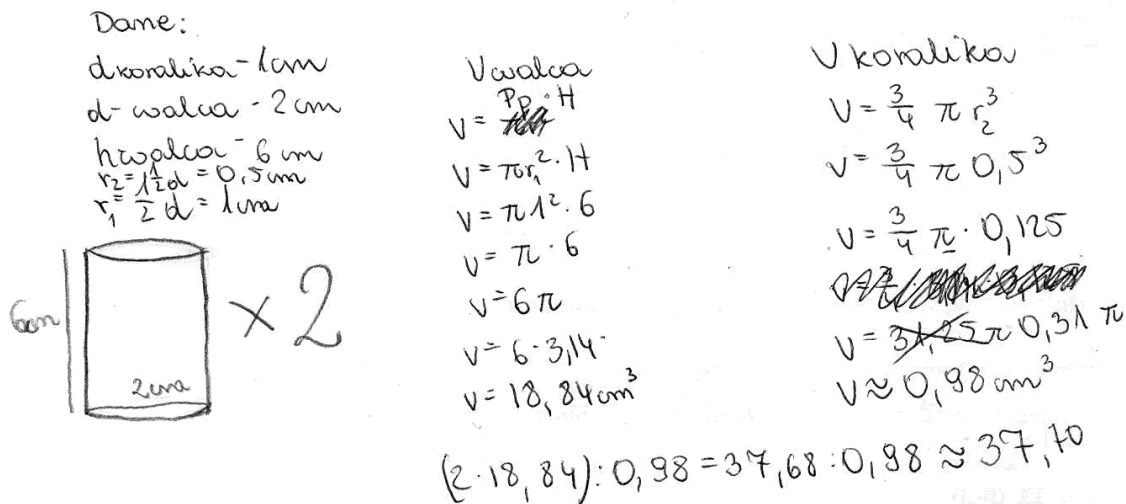 Dane:
d koralika - 1cm
d - walca - 2 cm
h walca - 6 cm
r₂ = ½ d = 0,5 cm
r₁ = ½ d = 1 cm
6cm
2 cm
× 2
V walca
V = Pp · H
V = πr₁² · H
V = π 1² · 6
V = π · 6
V = 6π
V = 6 · 3,14
V = 18,84 cm³
V koralika
V = 3/4 π r₂³
V = 3/4 π 0,5³
V = 3/4 π · 0,125
V = 31,25 π 0,31 π
V ≈ 0,98 cm³
(2 · 18,84) : 0,98 = 37,68 : 0,98 ≈ 37,70